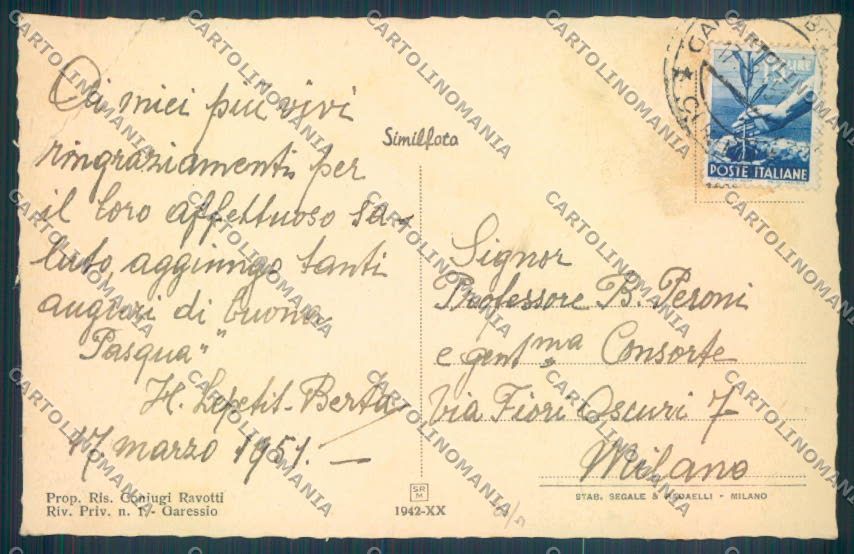 Ai miei più vivi
ringraziamenti per
il loro affettuoso sa-
luto, aggiungo tanti
auguri di buona
Pasqua"
H. Lepetit-Berta
17 marzo 1951. —
Prop. Ris. Coniugi Ravotti
Riv. Priv. n. 1. - Garessio
Similfoto
SR
M
1942-XX
15 LIRE
POSTE ITALIANE
Signor
Professore B. Peroni
e gent.ma Consorte
Via Fiori Oscuri 7
Milano
STAB. SEGALE & MIDAELLI - MILANO
CARTOLINOMANIA